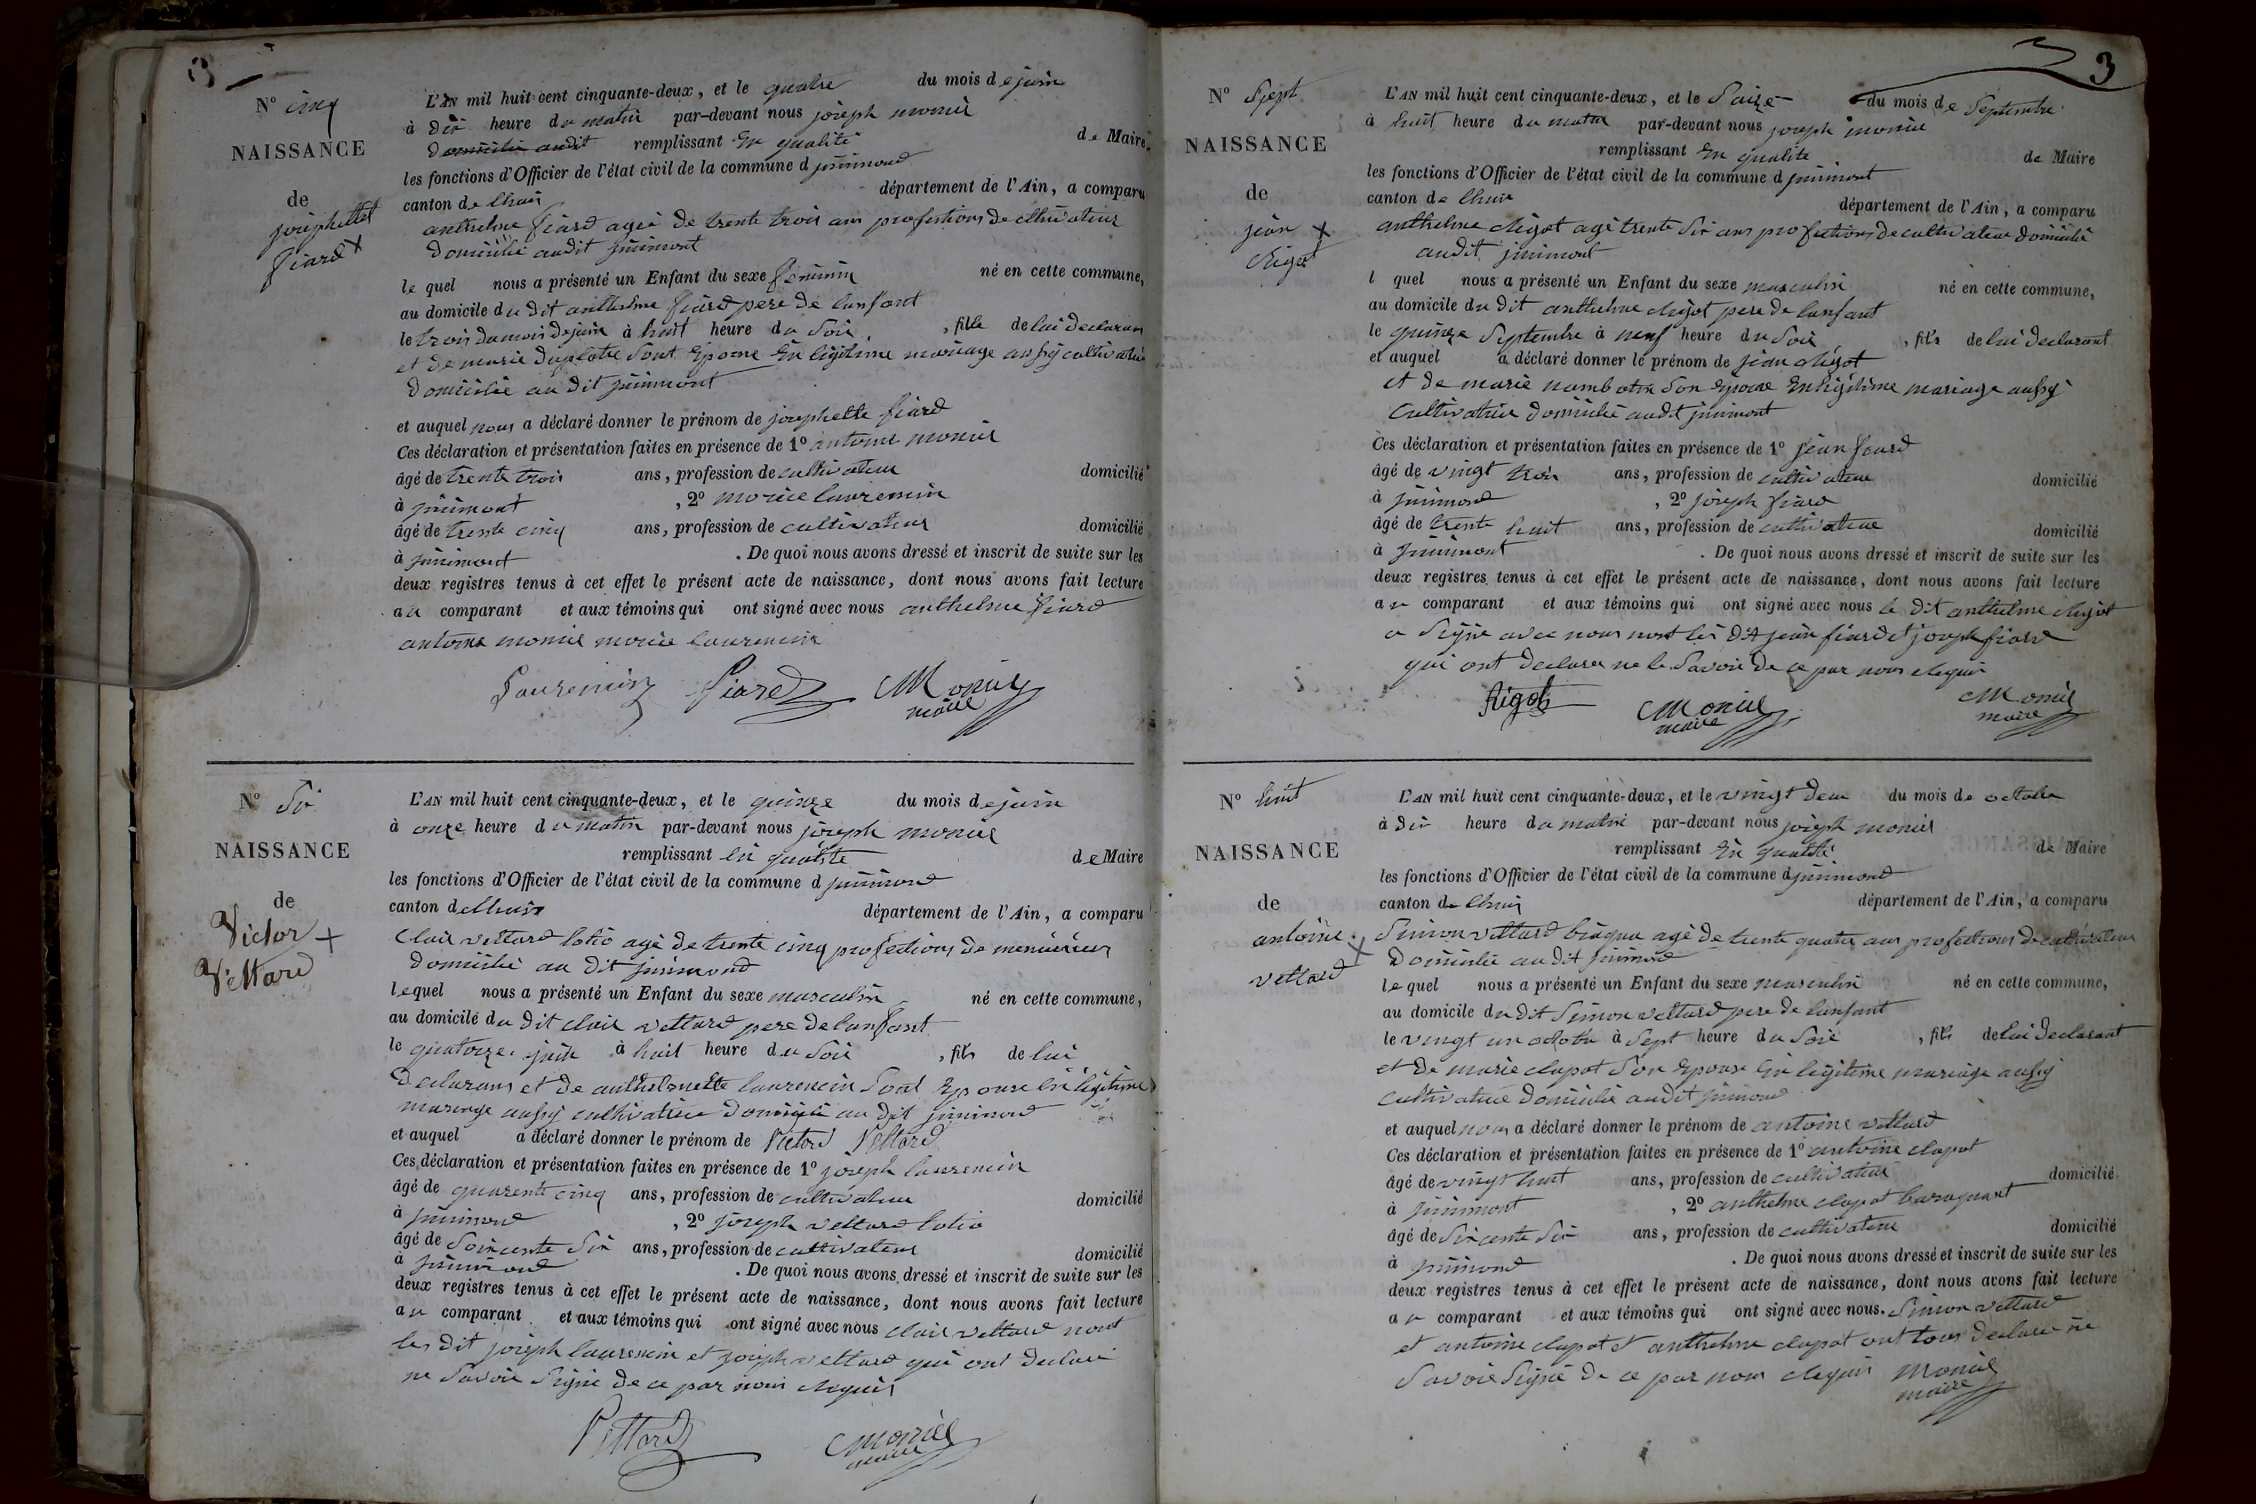 3
N° cinq
NAISSANCE
de
josephette
fiard
L'AN mil huit cent cinquante-deux, et le quatre du mois de juin
à dix heure du matin par-devant nous joseph monier
domicilié audit remplissant En qualité de Maire
les fonctions d'Officier de l'état civil de la commune d jnimond
canton de lhuis département de l'Ain, a comparu
anthelme fiard agé de trente trois ans profestions de cltivateur
domicilié audit jnimont
le quel nous a présenté un Enfant du sexe féminin né en cette commune,
au domicile du dit anthelme fiard pere de lanfant
le trois du mois de juin à huit heure du Soir, fille de lui declarans
et de marie Sont Epouse En légitime mariage aussy cultivatrice
domicilié au dit jnimont
et auquel nous a déclaré donner le prénom de josephette fiard
Ces déclaration et présentation faites en présence de 1° antoine monier
âgé de trente trois ans, profession de cultivateur domicilié
à jnimont, 2° laurencin
âgé de trente cinq ans, profession de cultivateur domicilié
à jnimont. De quoi nous avons dressé et inscrit de suite sur les
deux registres tenus à cet effet le présent acte de naissance, dont nous avons fait lecture
au comparant et aux témoins qui ont signé avec nous anthelme fiard
antoine monier laurencin
Laurencin fiard Monier
maire
N° Six
NAISSANCE
de
Victor
Vettard
L'AN mil huit cent cinquante-deux, et le quinze du mois de juin
à onze heure du matin par-devant nous joseph monier
remplissant En qualité de Maire
les fonctions d'Officier de l'état civil de la commune d jnimond
canton de lhuis département de l'Ain, a comparu
Clair vettard lotio agé de trente cinq profections de menuisier
domicilié au dit jnimond
le quel nous a présenté un Enfant du sexe masculin né en cette commune,
au domicile du dit clair vettard pere de lanfant
le quatorze juin à huit heure du Soir, fils de lui
Declarans et de anthelmette laurencin Sont Epouse En légitime
mariage aussy cultivatrice domicilié au dit jnimond
et auquel a déclaré donner le prénom de Victor Vettard
Ces déclaration et présentation faites en présence de 1° joseph laurencin
âgé de quarente cinq ans, profession de cultivateur domicilié
à jnimond, 2° joseph vettard lotio
âgé de Soixcente Six ans, profession de cultivateur domicilié
à jnimond. De quoi nous avons dressé et inscrit de suite sur les
deux registres tenus à cet effet le présent acte de naissance, dont nous avons fait lecture
au comparant et aux témoins qui ont signé avec nous clair vettard nont
les dit joseph laurencin et joseph vettard qui ont declaré
ne Savoir Signé de ce par nous
Vettard Monier
maire
3
N° Sept
NAISSANCE
de
jean
Rigot
L'AN mil huit cent cinquante-deux, et le Saize du mois de Septembre
à huit heure du matin par-devant nous joseph monier
remplissant En qualité de Maire
les fonctions d'Officier de l'état civil de la commune d jnimont
canton de lhuis département de l'Ain, a comparu
anthelme Rigot agé trente Six ans profections de cultivateur domicilié
audit jnimont
l quel nous a présenté un Enfant du sexe masculin né en cette commune,
au domicile du dit anthelme Rigot pere de lanfant
le quinze Septembre à neuf heure du Soir, fils de lui declarant
et auquel a déclaré donner le prénom de jean Rigot
et de marie Son Epouse En légitime mariage aussy
cultivatrice domicilié audit jnimont
Ces déclaration et présentation faites en présence de 1° jean fiard
âgé de vingt trois ans, profession de cultivateur domicilié
à jnimond, 2° joseph fiard
âgé de trente huit ans, profession de cultivateur domicilié
à jnimont. De quoi nous avons dressé et inscrit de suite sur les
deux registres tenus à cet effet le présent acte de naissance, dont nous avons fait lecture
au comparant et aux témoins qui ont signé avec nous le dit anthelme Rigot
a Signé avec nous nont les dit jean fiard et joseph fiard
qui ont declaré ne le Savoir de ce par nous
Rigot Monier Monier
maire maire
N° huit
NAISSANCE
de
antoine
vettard
L'AN mil huit cent cinquante-deux, et le vingt deux du mois de octobre
à dix heure du matin par-devant nous joseph monier
remplissant En qualité de Maire
les fonctions d'Officier de l'état civil de la commune d jnimond
canton de lhuis département de l'Ain, a comparu
Simon vettard agé de trente quatre ans profections de cultivateur
Domicilié au dit jnimond
le quel nous a présenté un Enfant du sexe masculin né en cette commune,
au domicile du dit Simon vettard pere de lanfant
le vingt un octobre à Sept heure du Soir, fils de lui declarant
et de marie clapot Son Epouse En légitime mariage aussy
cultivatrice domicilié audit jnimond
et auquel nous a déclaré donner le prénom de antoine vettard
Ces déclaration et présentation faites en présence de 1° antoine clapot
âgé de vingt huit ans, profession de cultivateur domicilié
à jnimont, 2° anthelme clapot
âgé de Sixcente Six ans, profession de cultivateur domicilié
à jnimond. De quoi nous avons dressé et inscrit de suite sur les
deux registres tenus à cet effet le présent acte de naissance, dont nous avons fait lecture
au comparant et aux témoins qui ont signé avec nous. Simon vettard
et antoine clapot et anthelme clapot ont tous declaré ne
Savoir Signé de ce par nous Monier
maire